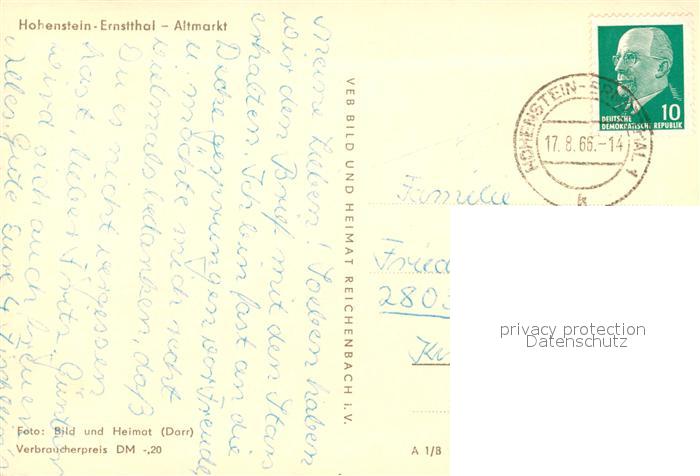 Hohenstein-Ernstthal – Altmarkt
Meine Lieben! Soeben haben
wir den Brief mit den Stars
erhalten. Ich bin fast an die
Decke gesprungen vor Freude
u. möchte mich recht
vielmals bedanken, daß
Du es nicht vergessen
hast lieber Fritz. Günter
wird sich auch freuen
Alles Gute Eure 4
Foto: Bild und Heimat (Darr)
Verbraucherpreis DM -,20
VEB BILD UND HEIMAT REICHENBACH i. V.
A 1/B
10
DEUTSCHE
DEMOKRATISCHE REPUBLIK
HOHENSTEIN-ERNSTTHAL 1
17.8.66.-14
k
Familie
Fried
2803
privacy protection
Datenschutz